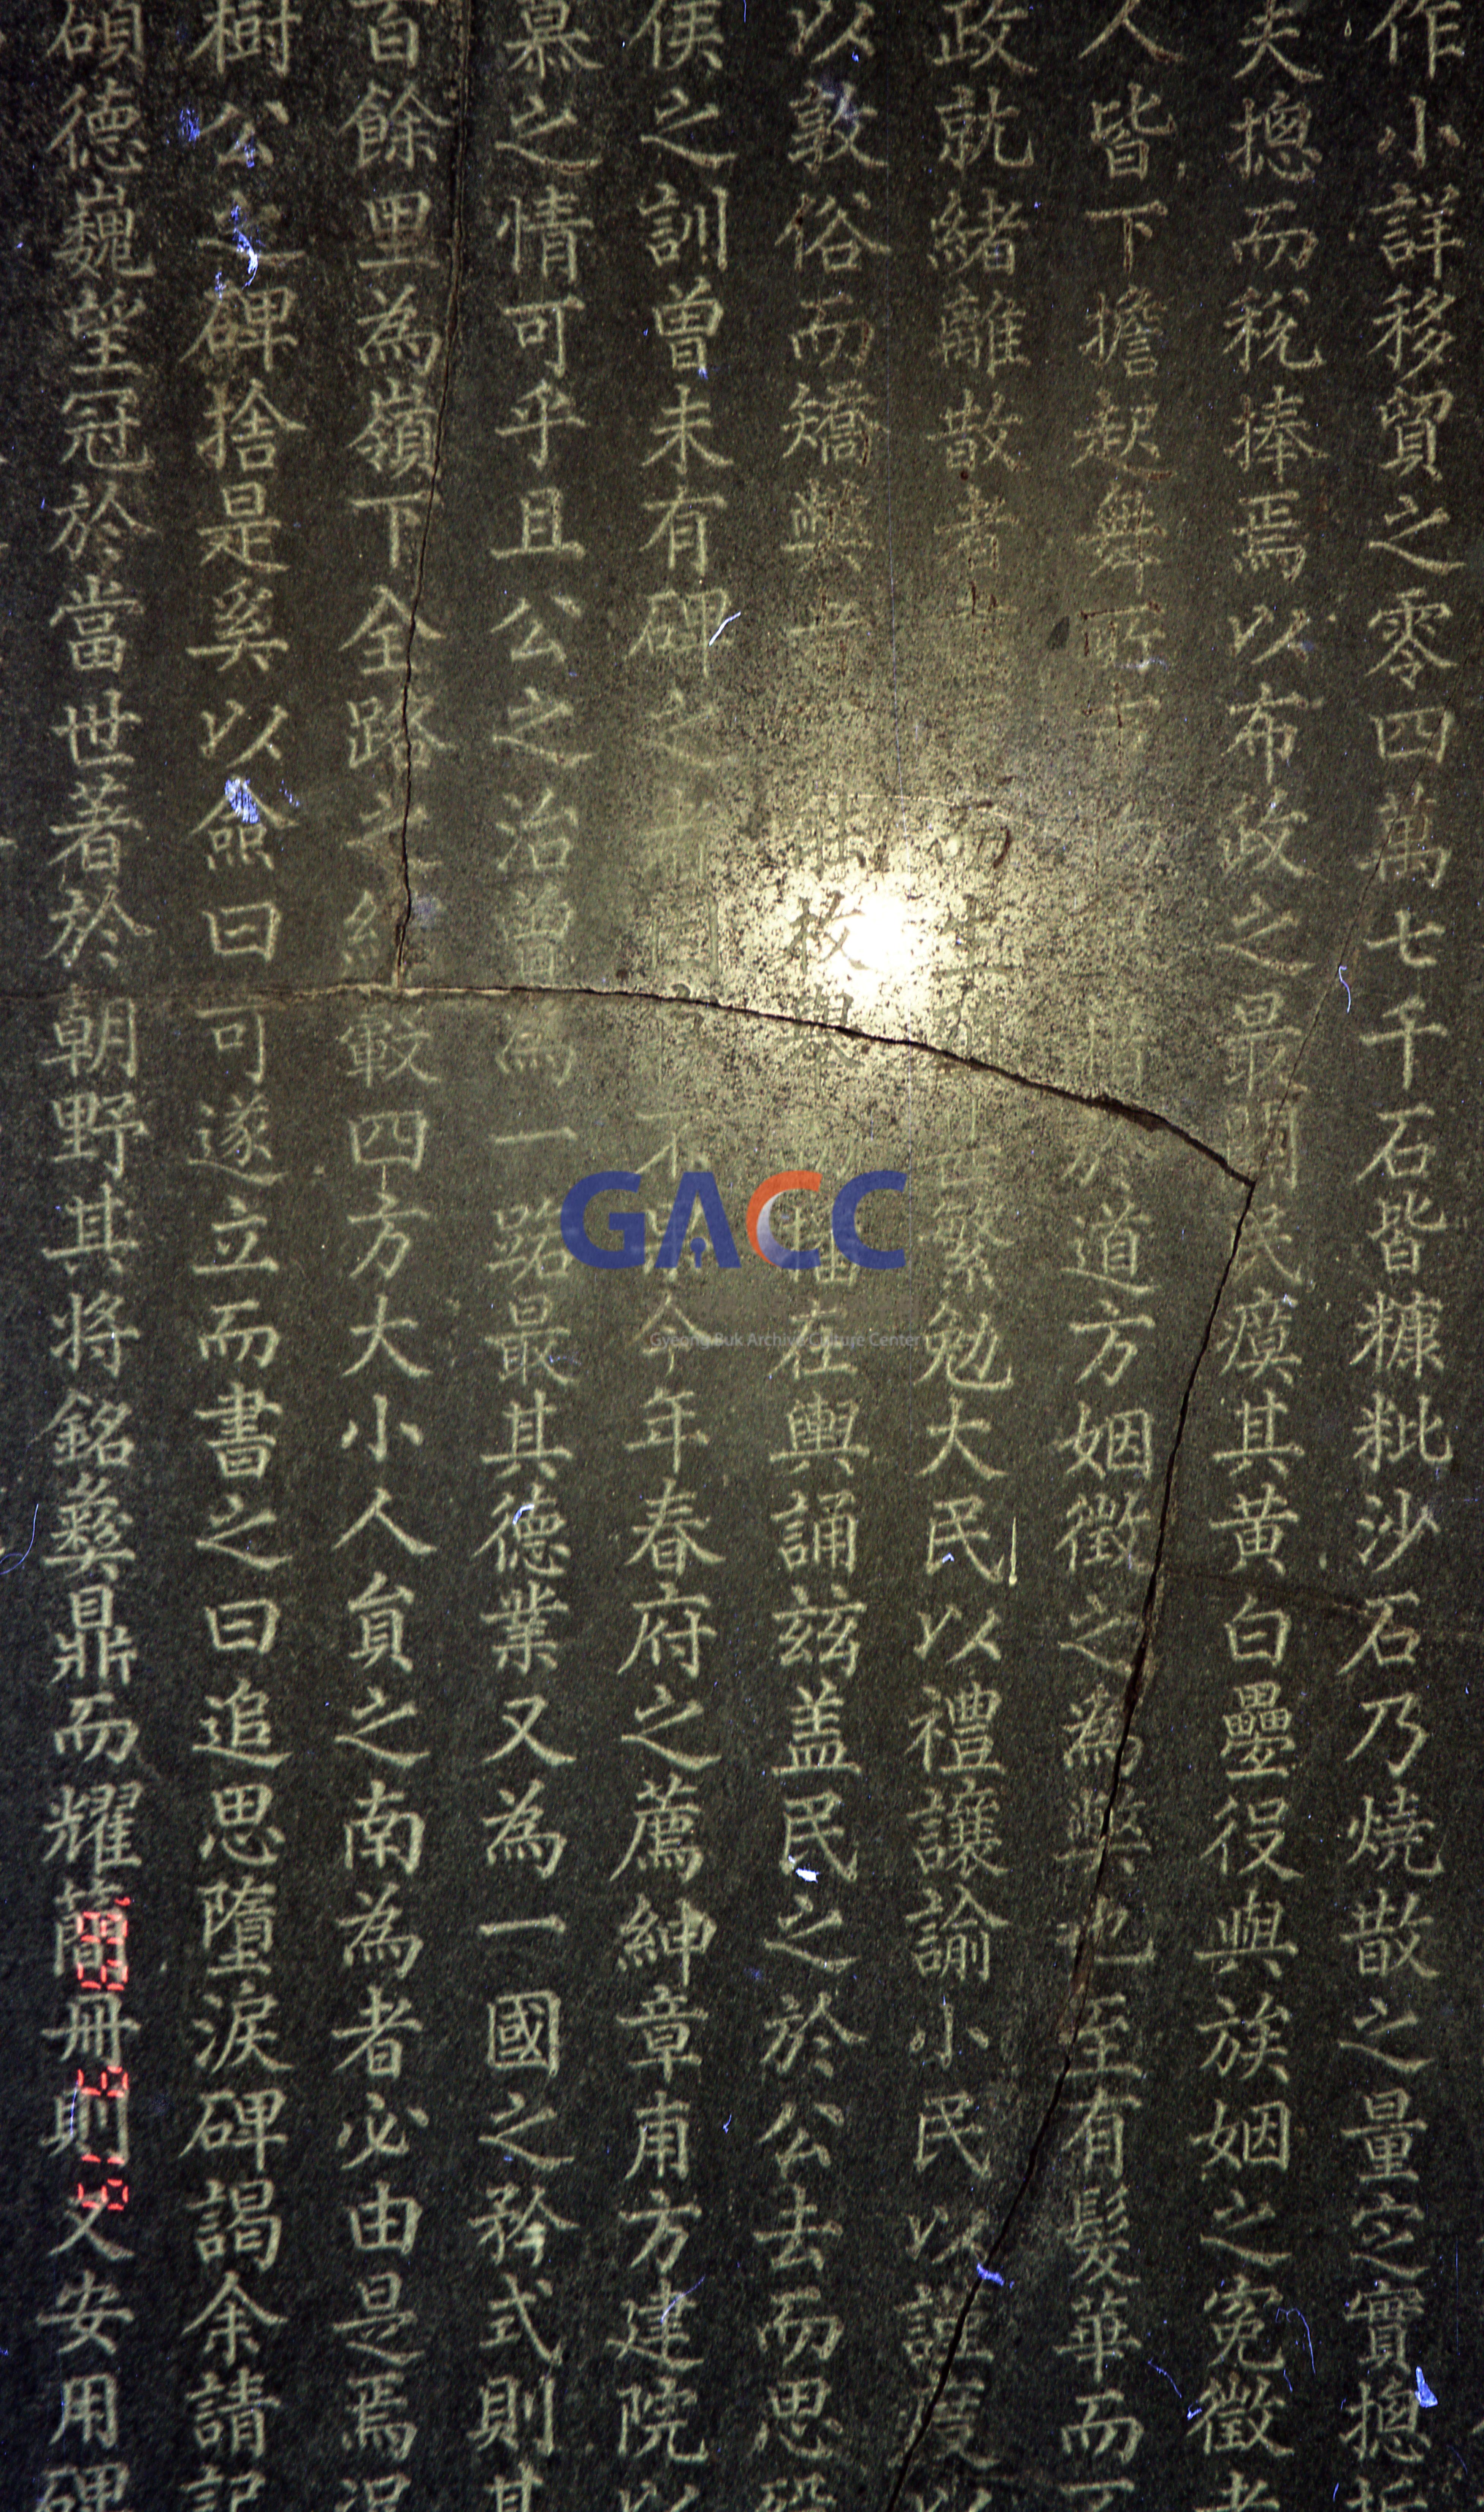 作小詳移貿之零四萬七千石皆糠粃沙石乃燒散之量定實摠
夫摠而稅捧焉以布政之最閧民瘼其黃白壘役與族姻之寃徵者
人皆下擔起舞 於道方姻徵之為弊也至有髮華而
政就緒離散者 繁勉大民以禮讓諭小民以謹
以敦俗而矯弊 在輿誦玆盖民之於公去而思
侯之訓曾未有碑之 今年春府之薦紳章甫方建院以
慕之情可乎且公之治嘗為一路最其德業又為一國之矜式則其
百餘里為嶺下全路之 較四方大小人貟之南為者必由是焉況
樹公之碑捨是奚以僉曰可遂立而書之曰追思墮淚碑謁余請記
碩德巍望冠於當世著於朝野其將銘彝鼎而耀簡冊則又安用碑
GACC
Gyeong Buk Archive Culture Center